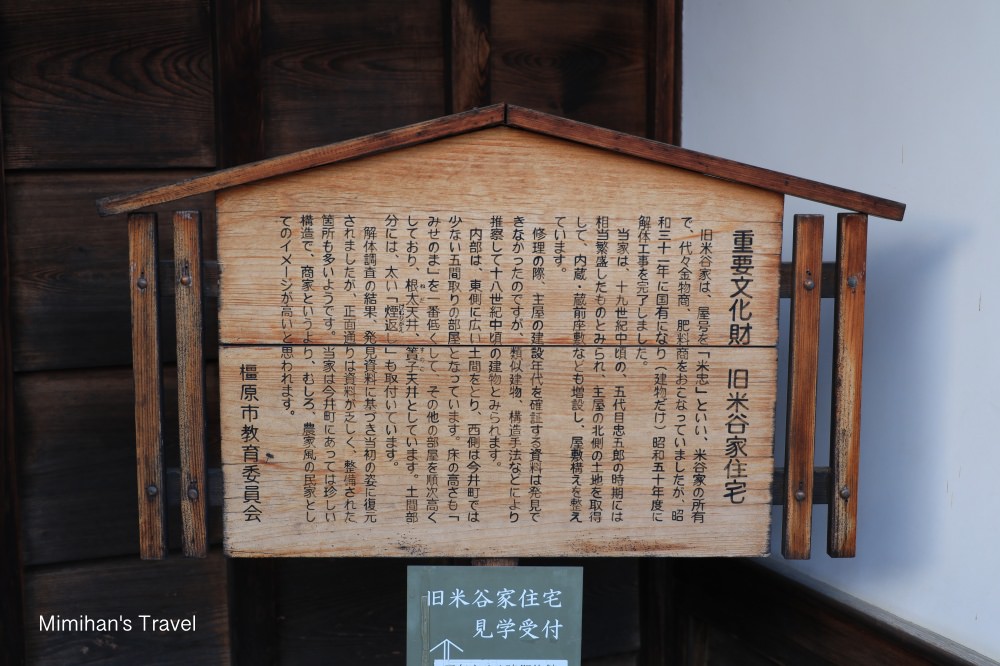 重要文化財 旧米谷家住宅
旧米谷家は、屋号を「米忠」といい、米谷家の所有
で、代々金物商、肥料商をおこなっていましたが、昭
和三十一年に国有になり（建物だけ）昭和五十年度に
解体工事を完了しました。
当家は、十九世紀中頃の、五代目忠五郎の時期には
相当繁盛したものとみられ、主屋の北側の土地を取得
して、内蔵・蔵前座敷なども増設し、屋敷構えを整え
ています。
修理の際、主屋の建設年代を確証する資料は発見で
きなかったのですが、類似建物、構造手法などにより
推察して十八世紀中頃の建物とみられます。
内部は、東側に広い土間をとり、西側は今井町では
少ない五間取りの部屋となっています。床の高さも「
みせのま」を一番低くして、その他の部屋を順次高く
しており、根太天井、簀子天井としています。土間部
分には、太い「煙返し」も取付いています。
解体調査の結果、発見資料に基づき当初の姿に復元
されましたが、正面通りは資料が乏しく、整備された
箇所も多いようです。当家は今井町にあっては珍しい
構造で、商家というより、むしろ、農家風の民家とし
てのイメージが高いと思われます。
橿原市教育委員会
旧米谷家住宅
見学受付
Mimihan's Travel